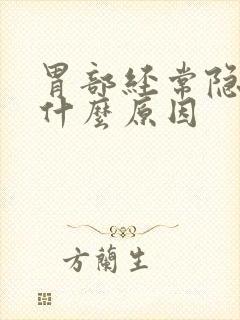 胃部经常隐
什麼原因
方蘭生